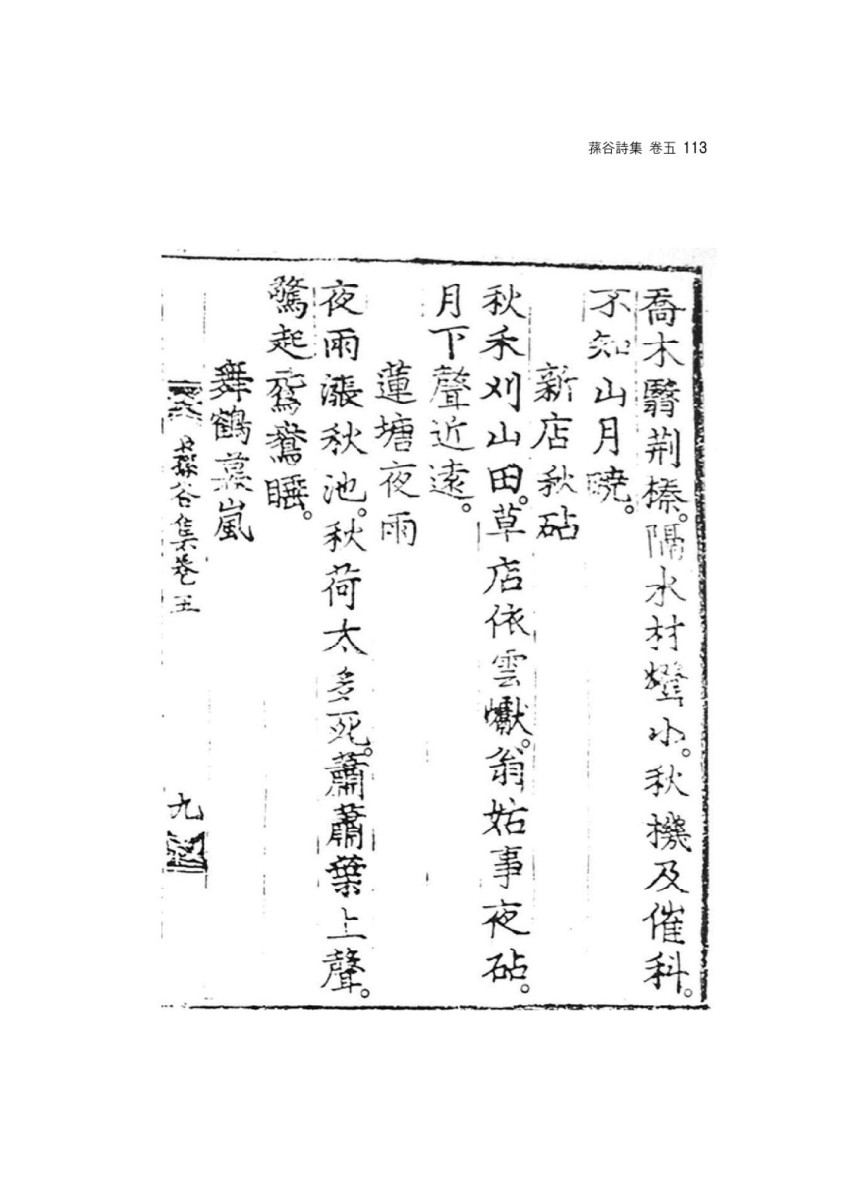 蓀谷詩集 卷五 113
喬木翳荆榛。隔水村燈小。秋機及催科。
不知山月曉。
新店秋砧
秋禾刈山田。草店依雲巘。翁姑事夜砧。
月下聲近遠。
蓮塘夜雨
夜雨漲秋池。秋荷太多死。蕭蕭葉上聲。
驚起鴛鴦睡。
舞鶴暮嵐
蓀谷集卷五
九